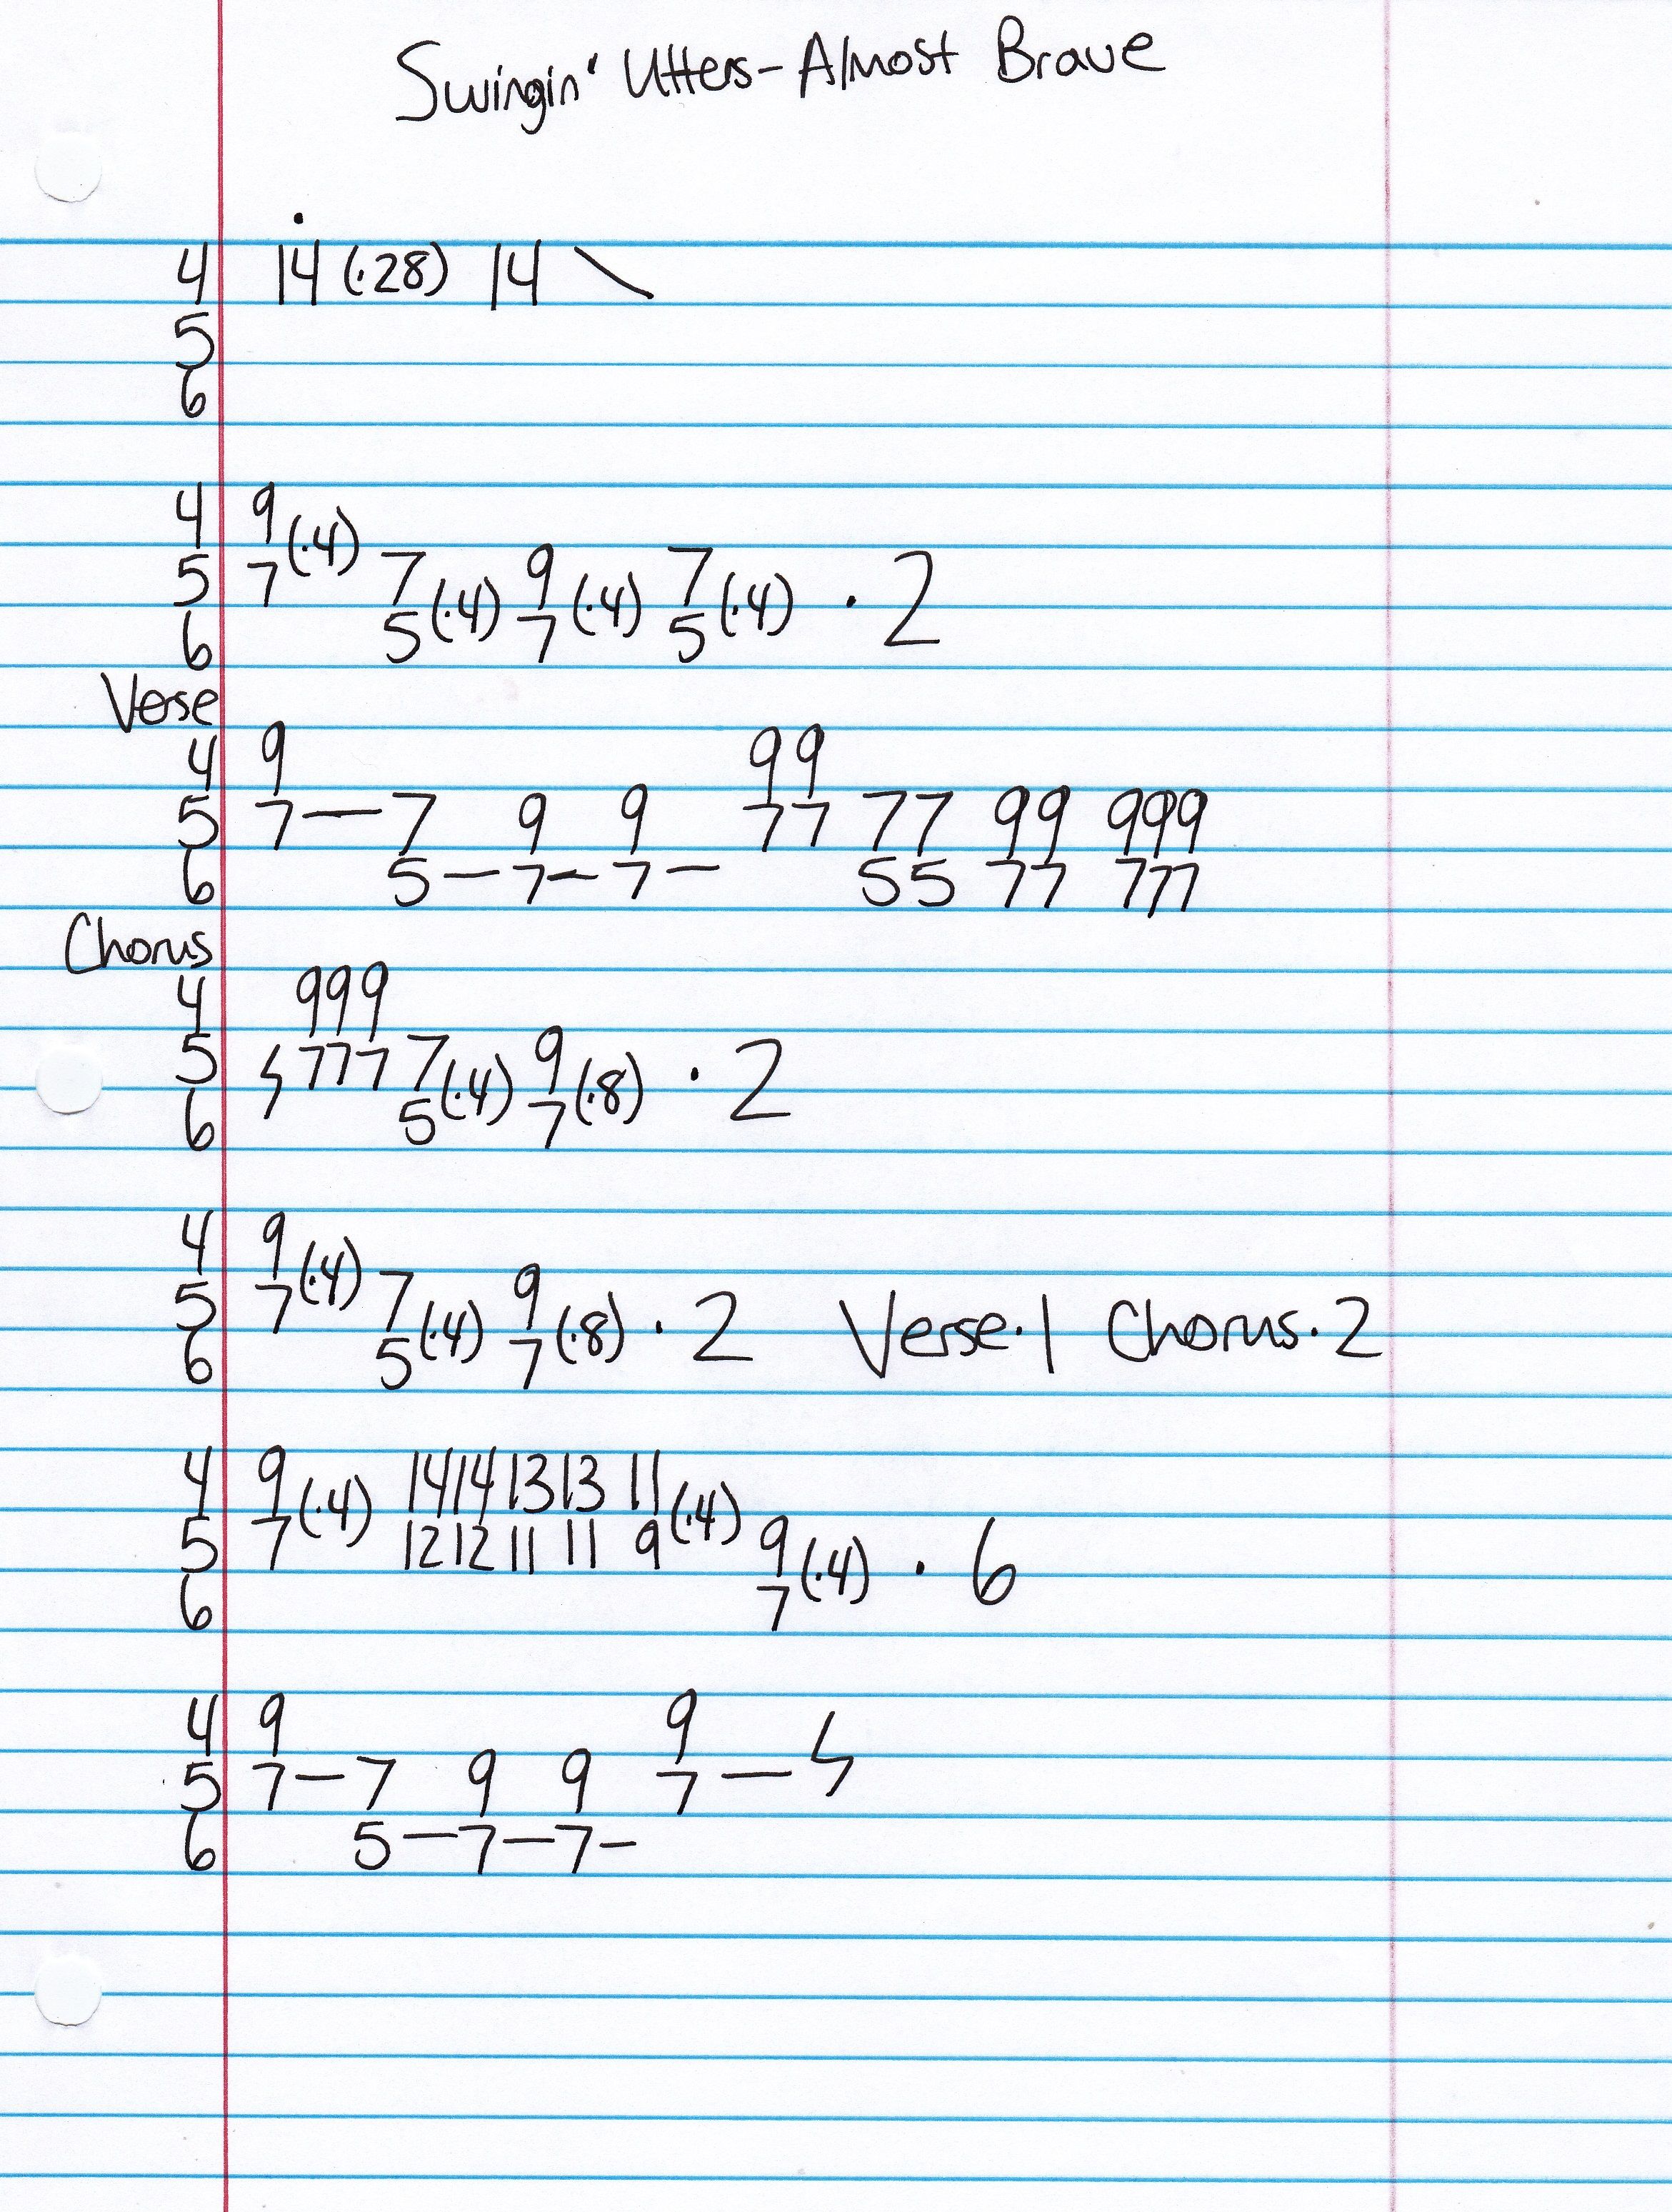 Swingin' Utters-Almost Brave
4 14 (·28) 14 \
5
6
4 9
5 7 (·4) 7 9 7
6 5 (·4) 7 (·4) 5 (·4) · 2
Verse
4 9 99
5 7 — 7 9 9 77 77 99 999
6 5 — 7 — 7 — 55 77 777
Chorus
4 999
5 777 7 9
6 5 (·4) 7 (·8) · 2
4 9
5 7 (·4) 7 9
6 5 (·4) 7 (·8) · 2 Verse·1 Chorus·2
4 9 14 14 13 13 11
5 7 (·4) 12 12 11 11 9 (·4) 9
6 7 (·4) · 6
4 9 9
5 7 — 7 9 9 7 —
6 5 — 7 — 7 -